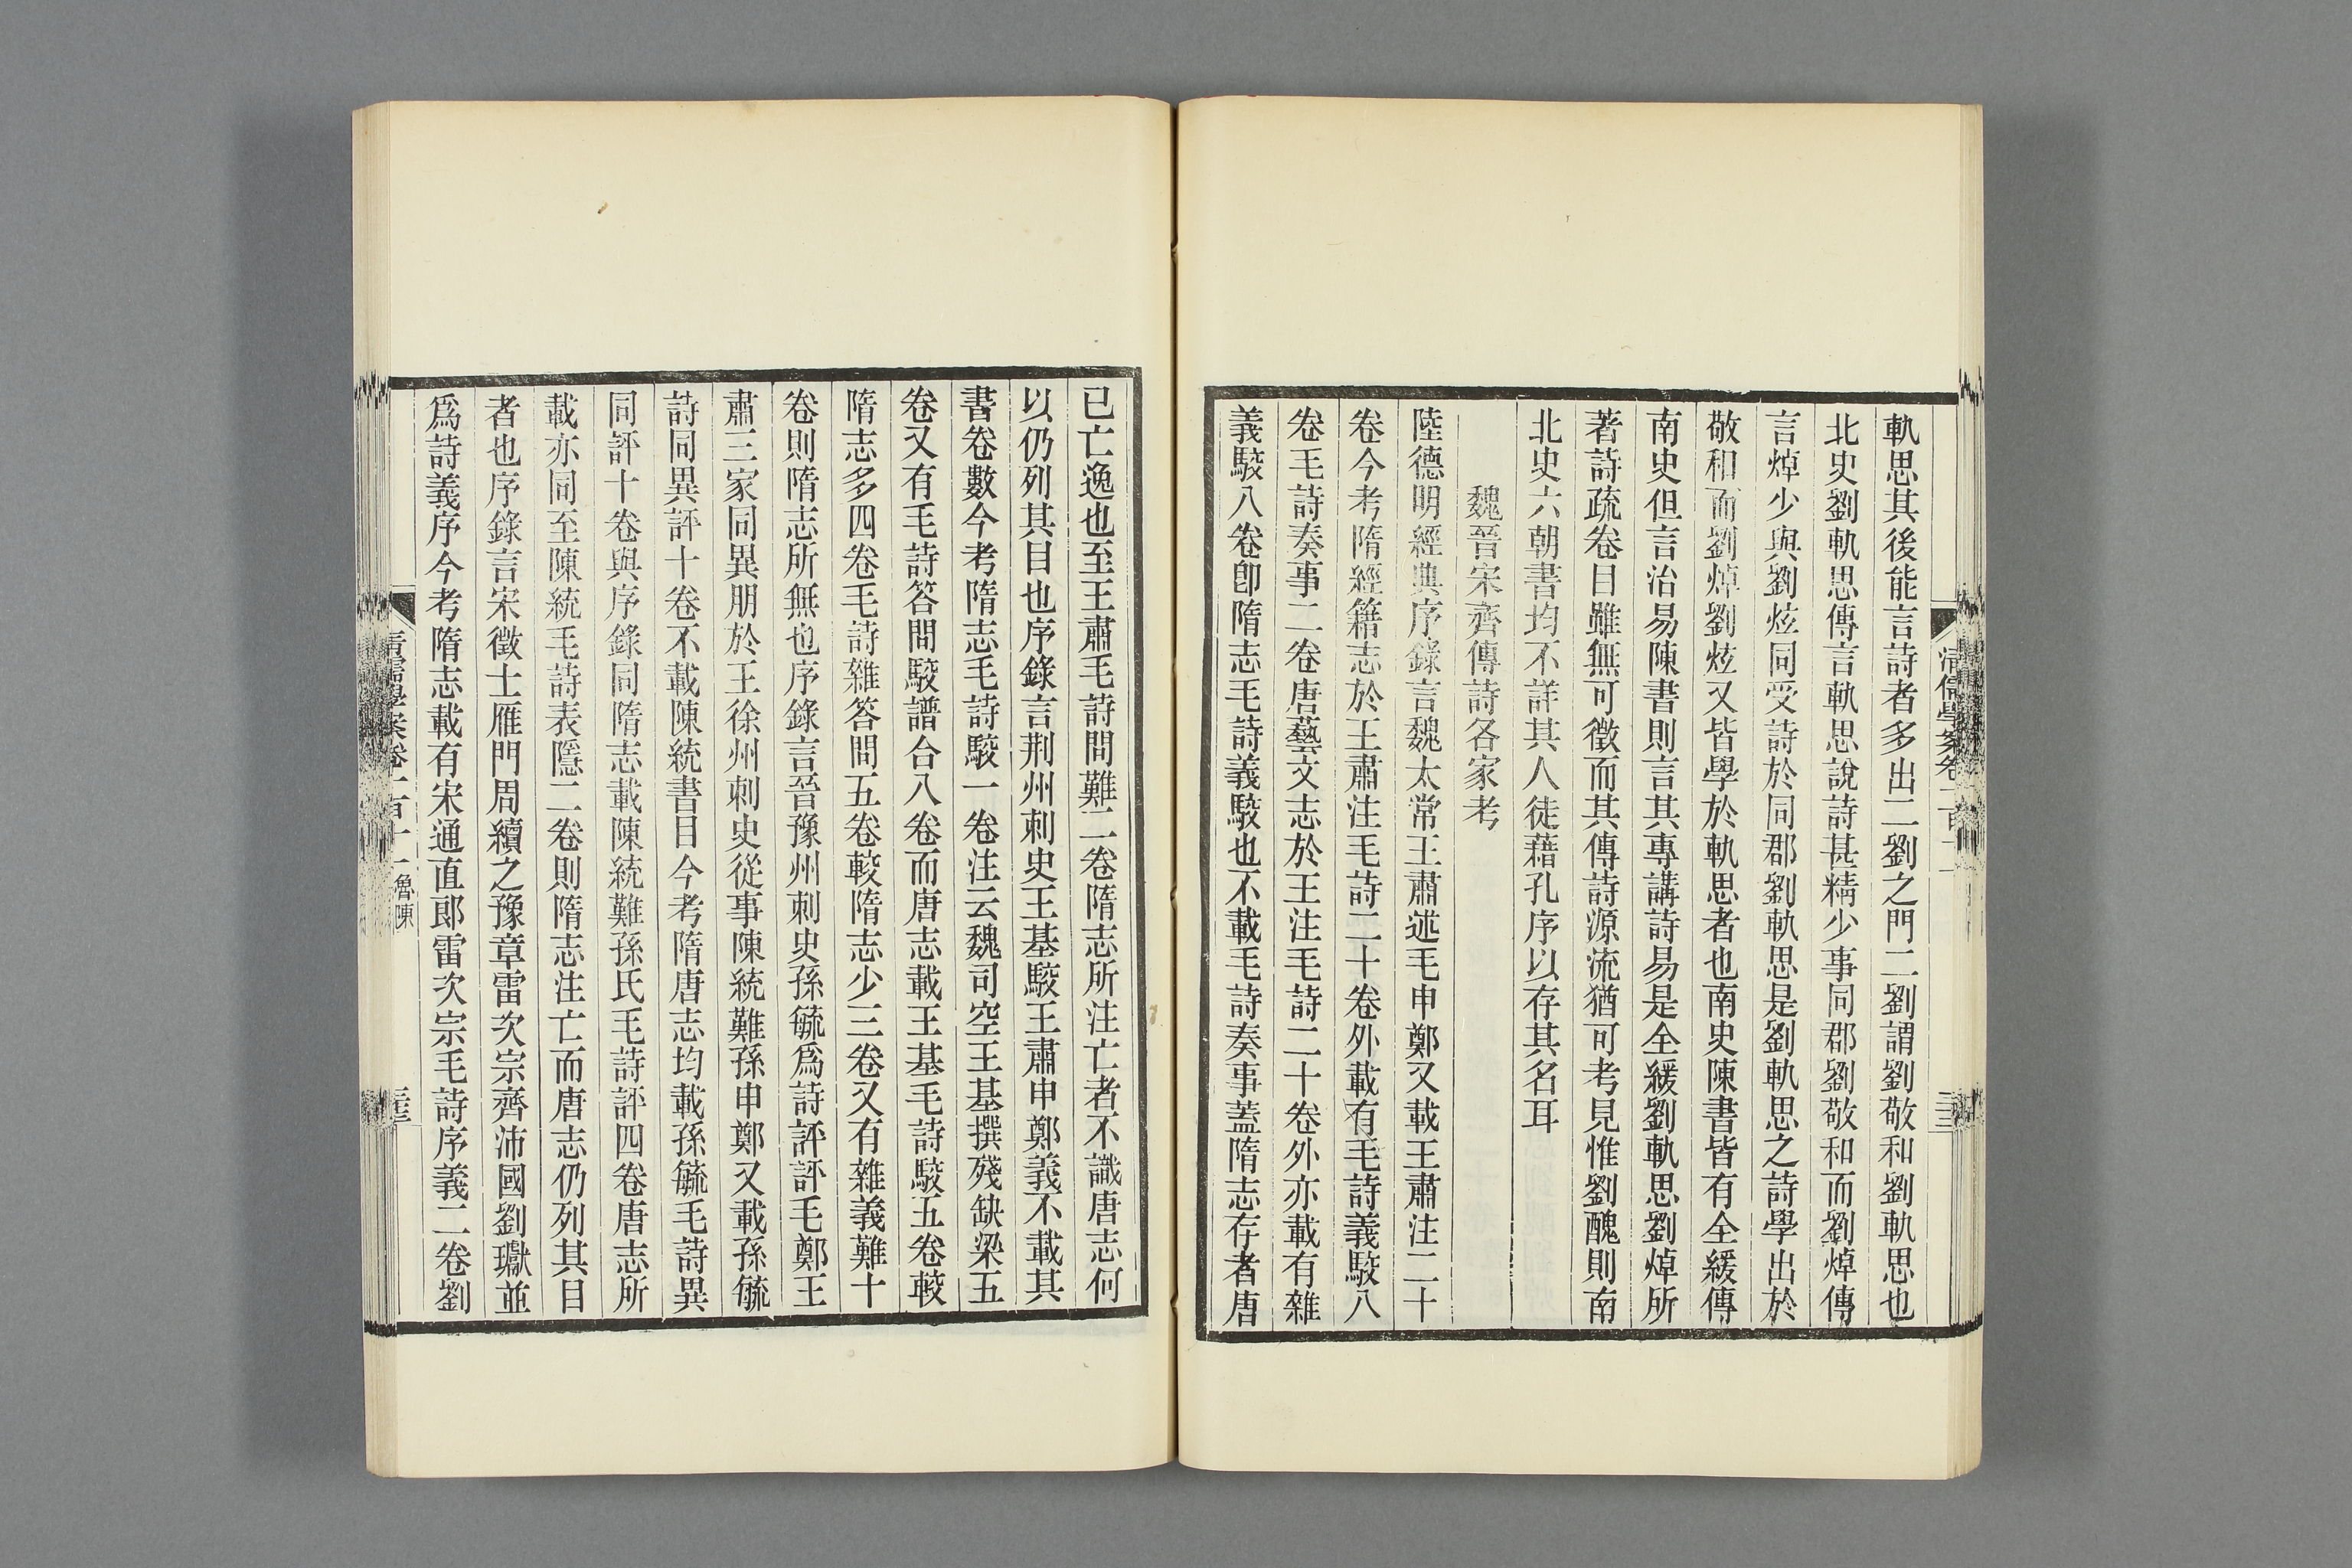 軌思其後能言詩者多出二劉之門二劉謂劉敬和劉軌思也
北史劉軌思傳言軌思說詩甚精少事同郡劉敬和而劉焯傳
言焯少與劉炫同受詩於同郡劉軌思是劉軌思之詩學出於
敬和而劉焯劉炫又皆學於軌思者也南史陳書皆有全緩傳
南史但言治易陳書則言其專講詩易是全緩劉軌思劉焯所
著詩疏卷目雖無可徵而其傳詩源流猶可考見惟劉醜則南
北史六朝書均不詳其人徒藉孔序以存其名耳
魏晉宋齊傳詩各家考
陸德明經典序錄言魏太常王肅述毛申鄭又載王肅注二十
卷今考隋經籍志於王肅注毛詩二十卷外載有毛詩義駮八
卷毛詩奏事二卷唐藝文志於王注毛詩二十卷外亦載有雜
義駮八卷卽隋志毛詩義駮也不載毛詩奏事蓋隋志存者唐
已亡逸也至王肅毛詩問難二卷隋志所注亡者不識唐志何
以仍列其目也序錄言荆州刺史王基駮王肅申鄭義不載其
書卷數今考隋志毛詩駮一卷注云魏司空王基撰殘缺梁五
卷又有毛詩答問駮譜合八卷而唐志載王基毛詩駮五卷較
隋志多四卷毛詩雜答問五卷較隋志少三卷又有雜義難十
卷則隋志所無也序錄言晉豫州刺史孫毓爲詩評評毛鄭王
肅三家同異朋於王徐州刺史從事陳統難孫申鄭又載孫毓
詩同異評十卷不載陳統書目今考隋唐志均載孫毓毛詩異
同評十卷與序錄同隋志載陳統難孫氏毛詩評四卷唐志所
載亦同至陳統毛詩表隱二卷則隋志注亡而唐志仍列其目
者也序錄言宋徵士雁門周續之豫章雷次宗齊沛國劉瓛並
爲詩義序今考隋志載有宋通直郎雷次宗毛詩序義二卷劉
清儒學案卷二百十一 魯陳